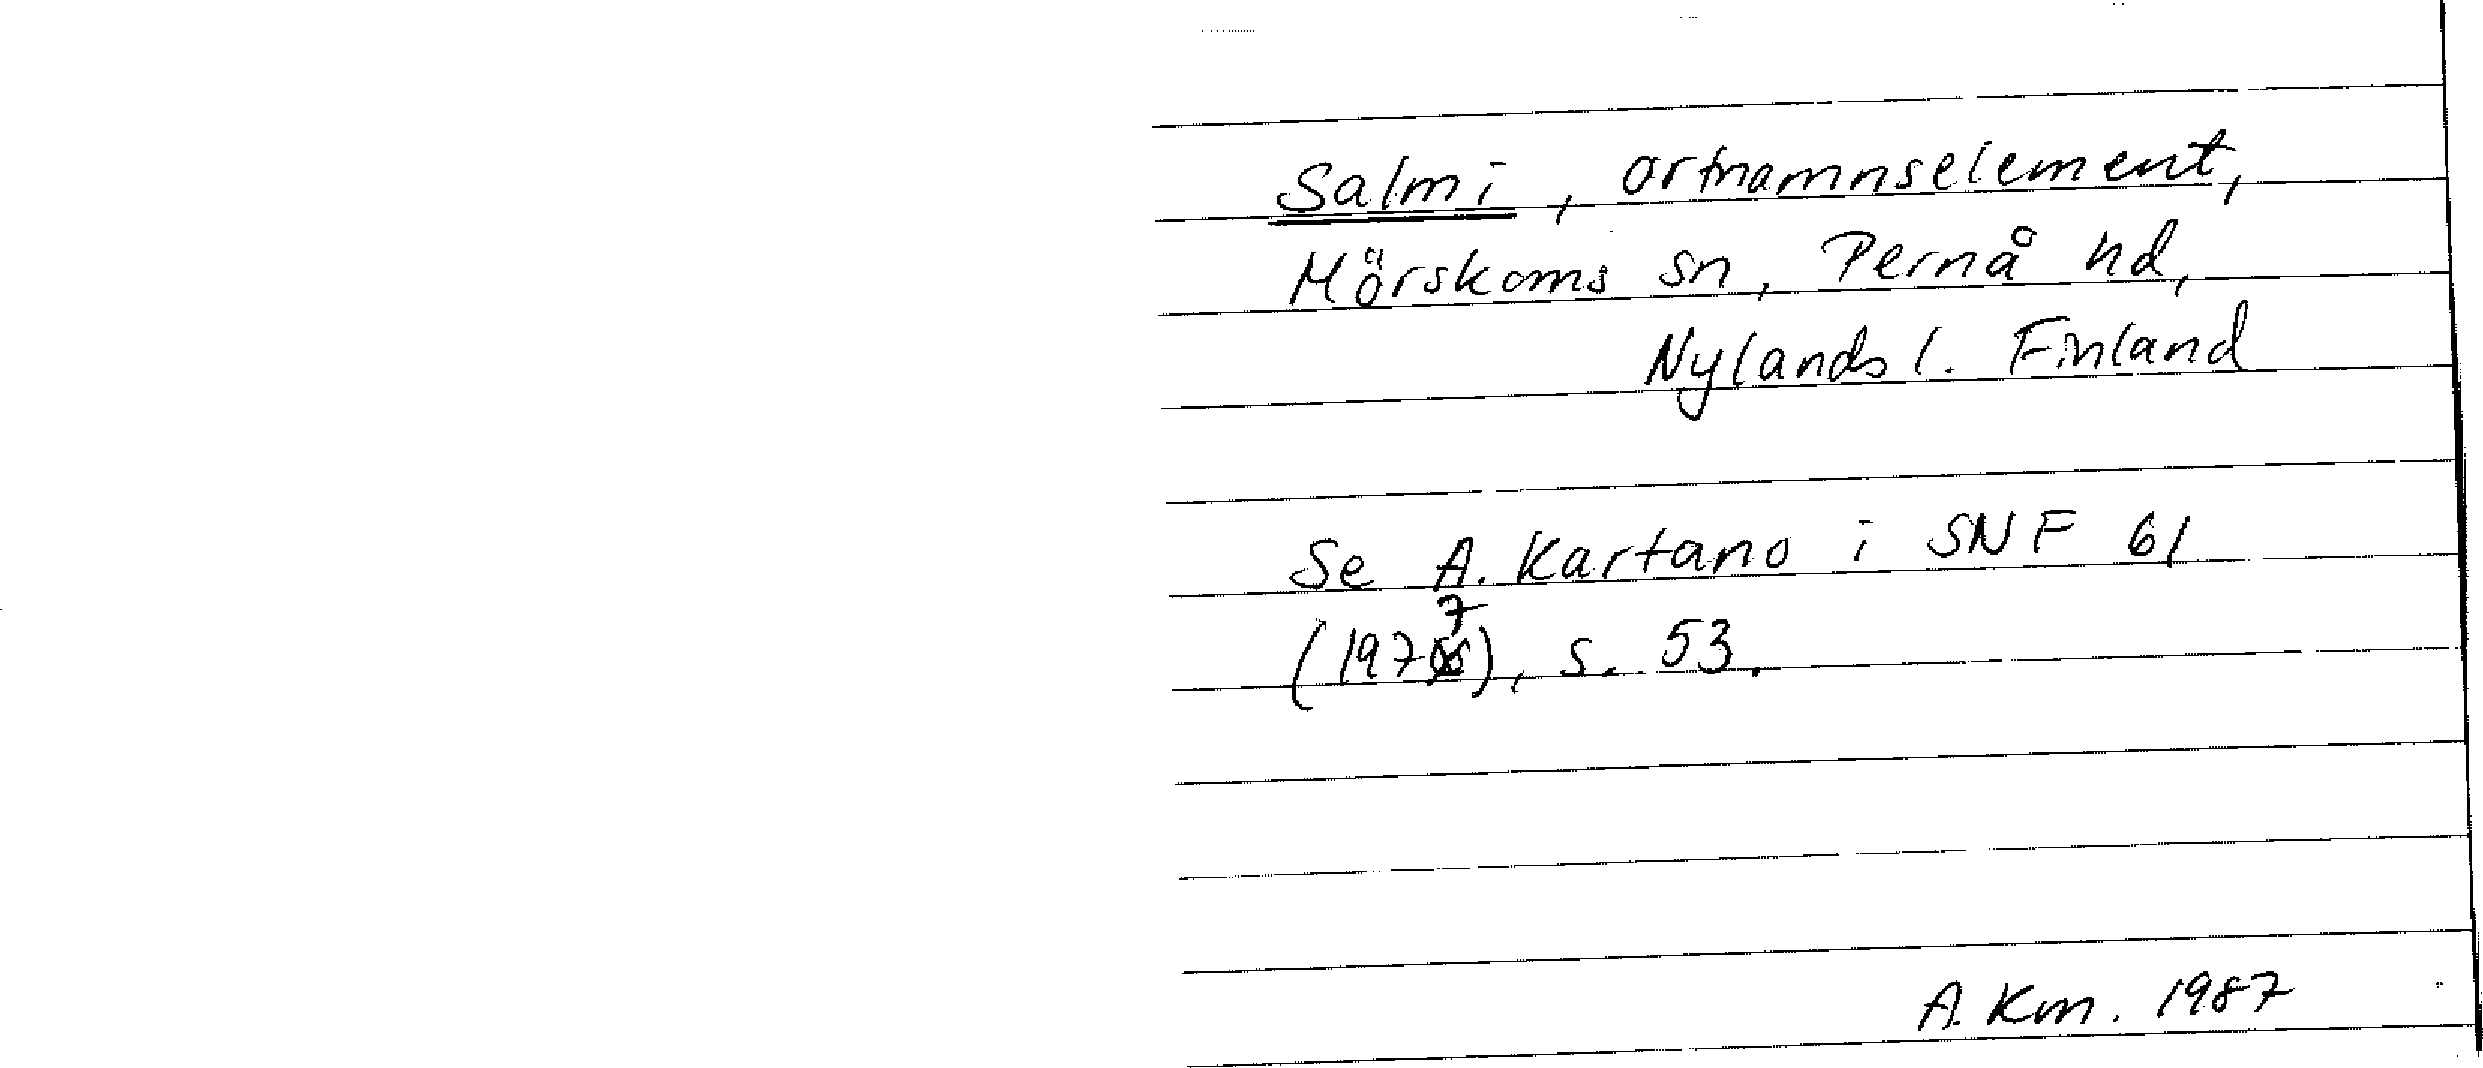 Salmi, ortnamnselement,
Mörskoms sn, Pernå hd,
Nylands l. Finland
Se A. Kartano i SNF 61
(1977), s. 53.
A. Km. 1987